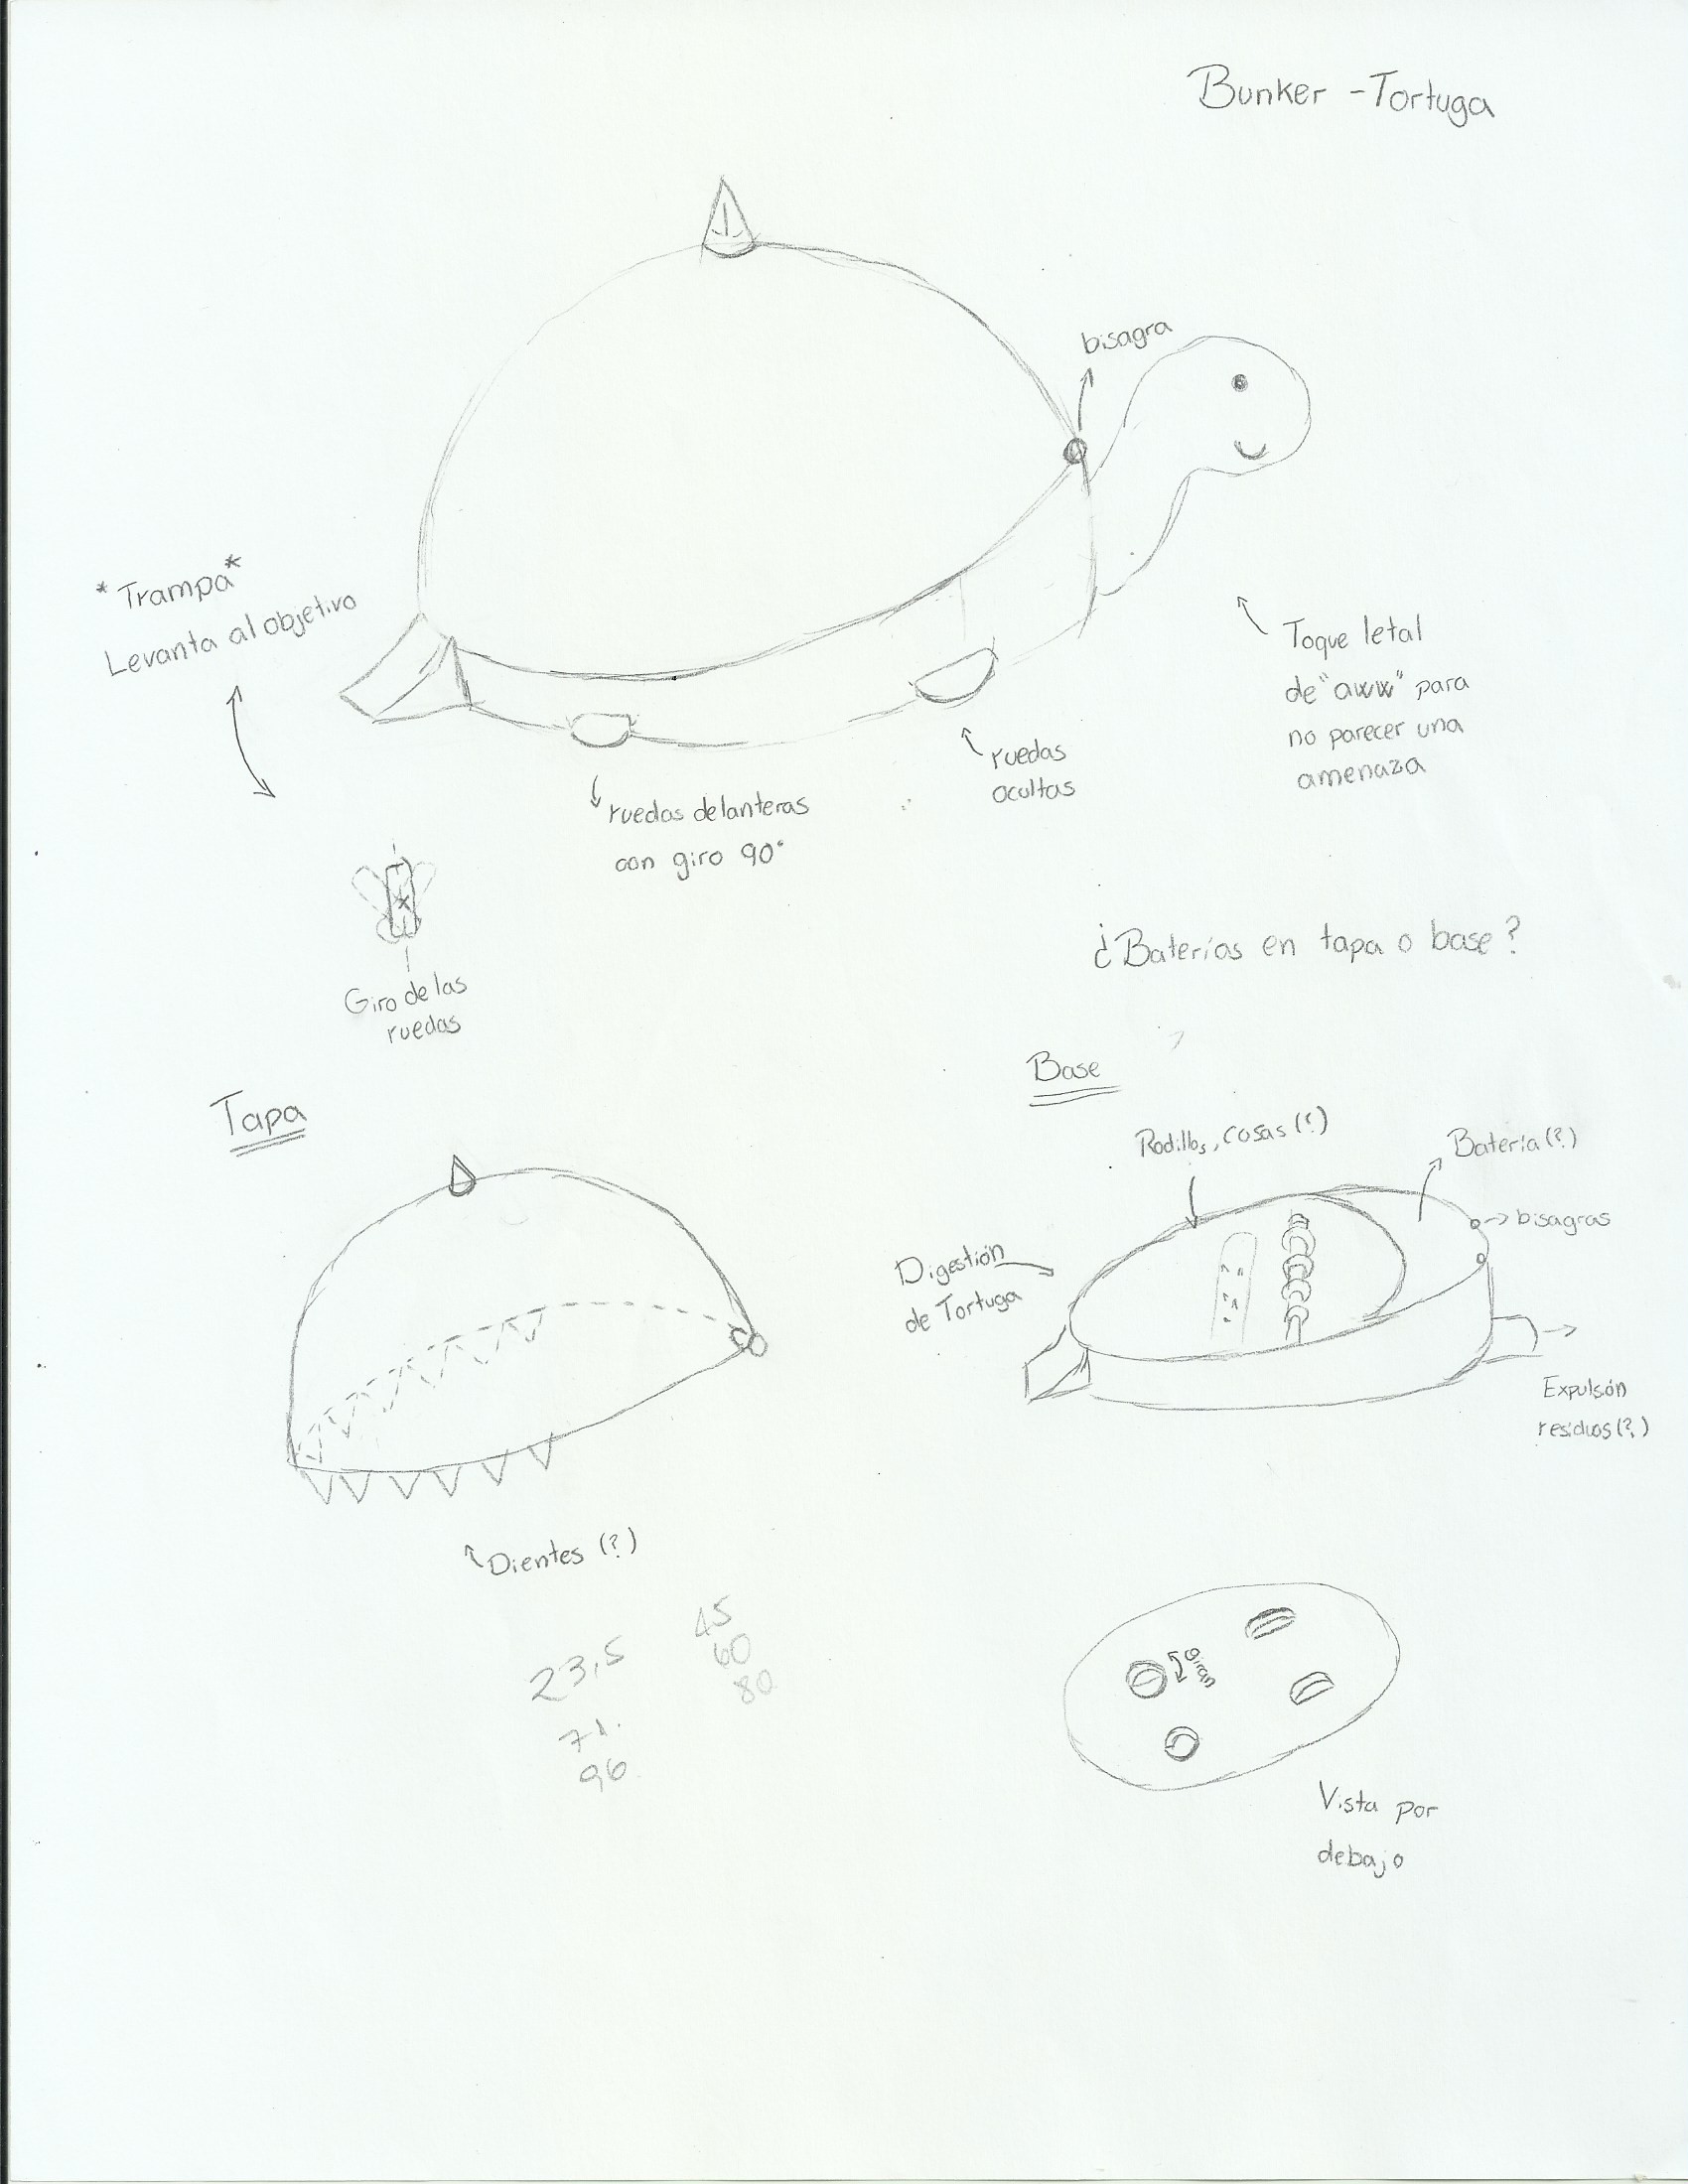 Bunker - Tortuga
bisagra
*Trampa*
Levanta al objetivo
Toque letal
de "aww" para
no parecer una
amenaza
ruedas
ocultas
ruedas delanteras
con giro 90°
Giro de las
ruedas
¿Baterías en tapa o base?
Tapa
Base
Rodillos, cosas (?)
Batería (?)
bisagras
Digestión
de Tortuga
Expulsón
residuos (?)
Dientes (?)
23,5
96
45
60
80
giran
Vista por
debajo